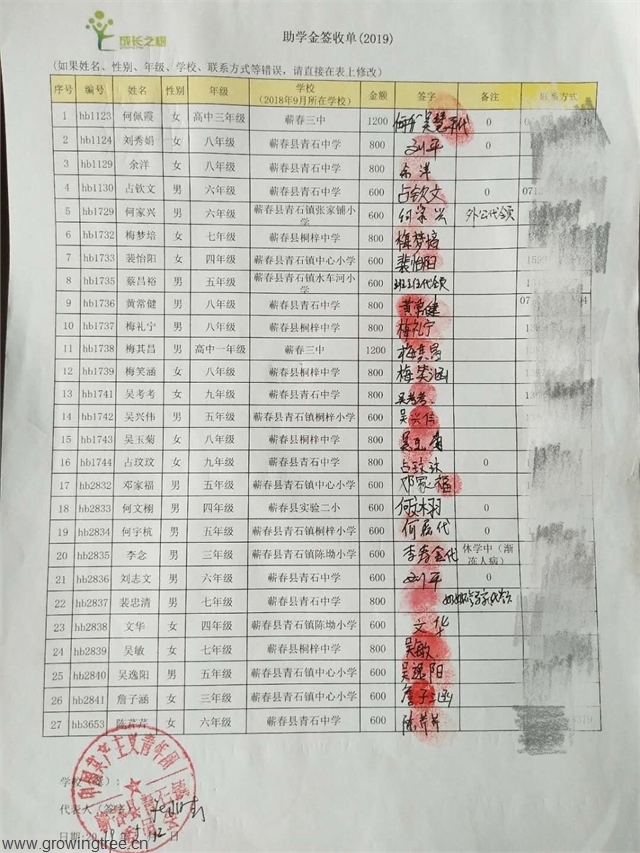 成长之树
助学金签收单(2019)
(如果姓名、性别、年级、学校、联系方式等错误，请直接在表上修改)
序号 编号 姓名 性别 年级 学校 (2018年9月所在学校) 金额 签字 备注 联系方式
1 hb1123 何佩霞 女 高中三年级 蕲春三中 1200 0
2 hb1124 刘秀娟 女 八年级 蕲春县青石中学 800 刘平 0
3 hb1129 余洋 女 八年级 蕲春县青石中学 800 余洋
4 hb1130 占钦文 男 六年级 蕲春县青石中学 600 占钦文 0 071
5 hb1729 何家兴 男 六年级 蕲春县青石镇张家铺小学 600 何家兴 外公代领
6 hb1732 梅梦培 女 七年级 蕲春县桐梓中学 800 梅梦培
7 hb1733 裴怡阳 女 四年级 蕲春县青石镇中心小学 600 裴怡阳
8 hb1735 蔡昌裕 男 五年级 蕲春县青石镇水车河小学 600 班主任代领
9 hb1736 黄常健 男 八年级 蕲春县青石中学 800 黄常健
10 hb1737 梅礼宁 男 八年级 蕲春县桐梓中学 800 梅礼宁
11 hb1738 梅其昌 男 高中一年级 蕲春三中 1200 梅其昌
12 hb1739 梅笑涵 女 八年级 蕲春县桐梓中学 800 梅笑涵
13 hb1741 吴考考 女 九年级 蕲春县青石中学 800 吴考考
14 hb1742 吴兴伟 男 五年级 蕲春县青石镇桐梓小学 600 吴兴伟
15 hb1743 吴玉菊 女 八年级 蕲春县桐梓中学 800 吴玉菊
16 hb1744 占玟玟 女 九年级 蕲春县青石中学 800 0
17 hb2832 邓家福 男 五年级 蕲春县青石镇中心小学 600 邓家福
18 hb2833 何文栩 男 四年级 蕲春县实验二小 600 何文栩 0
19 hb2834 何宇杭 男 五年级 蕲春县青石镇桐梓小学 600
20 hb2835 李念 男 三年级 蕲春县青石镇陈坳小学 600 休学中(渐冻人病)
21 hb2836 刘志文 男 六年级 蕲春县青石中学 600 刘平 0
22 hb2837 裴忠清 男 七年级 蕲春县青石中学 800
23 hb2838 文华 女 四年级 蕲春县青石镇陈坳小学 600 文华
24 hb2839 吴敏 女 七年级 蕲春县桐梓中学 800 吴敏
25 hb2840 吴逸阳 男 五年级 蕲春县青石镇中心小学 600 吴逸阳
26 hb2841 詹子涵 女 三年级 蕲春县青石镇中心小学 600 詹子涵
27 hb3653 陈芹芹 女 六年级 蕲春县青石中学 600 陈芹芹
中国共产主义青年团
学校(
代表人(签
日期:20
www.growingtree.cn